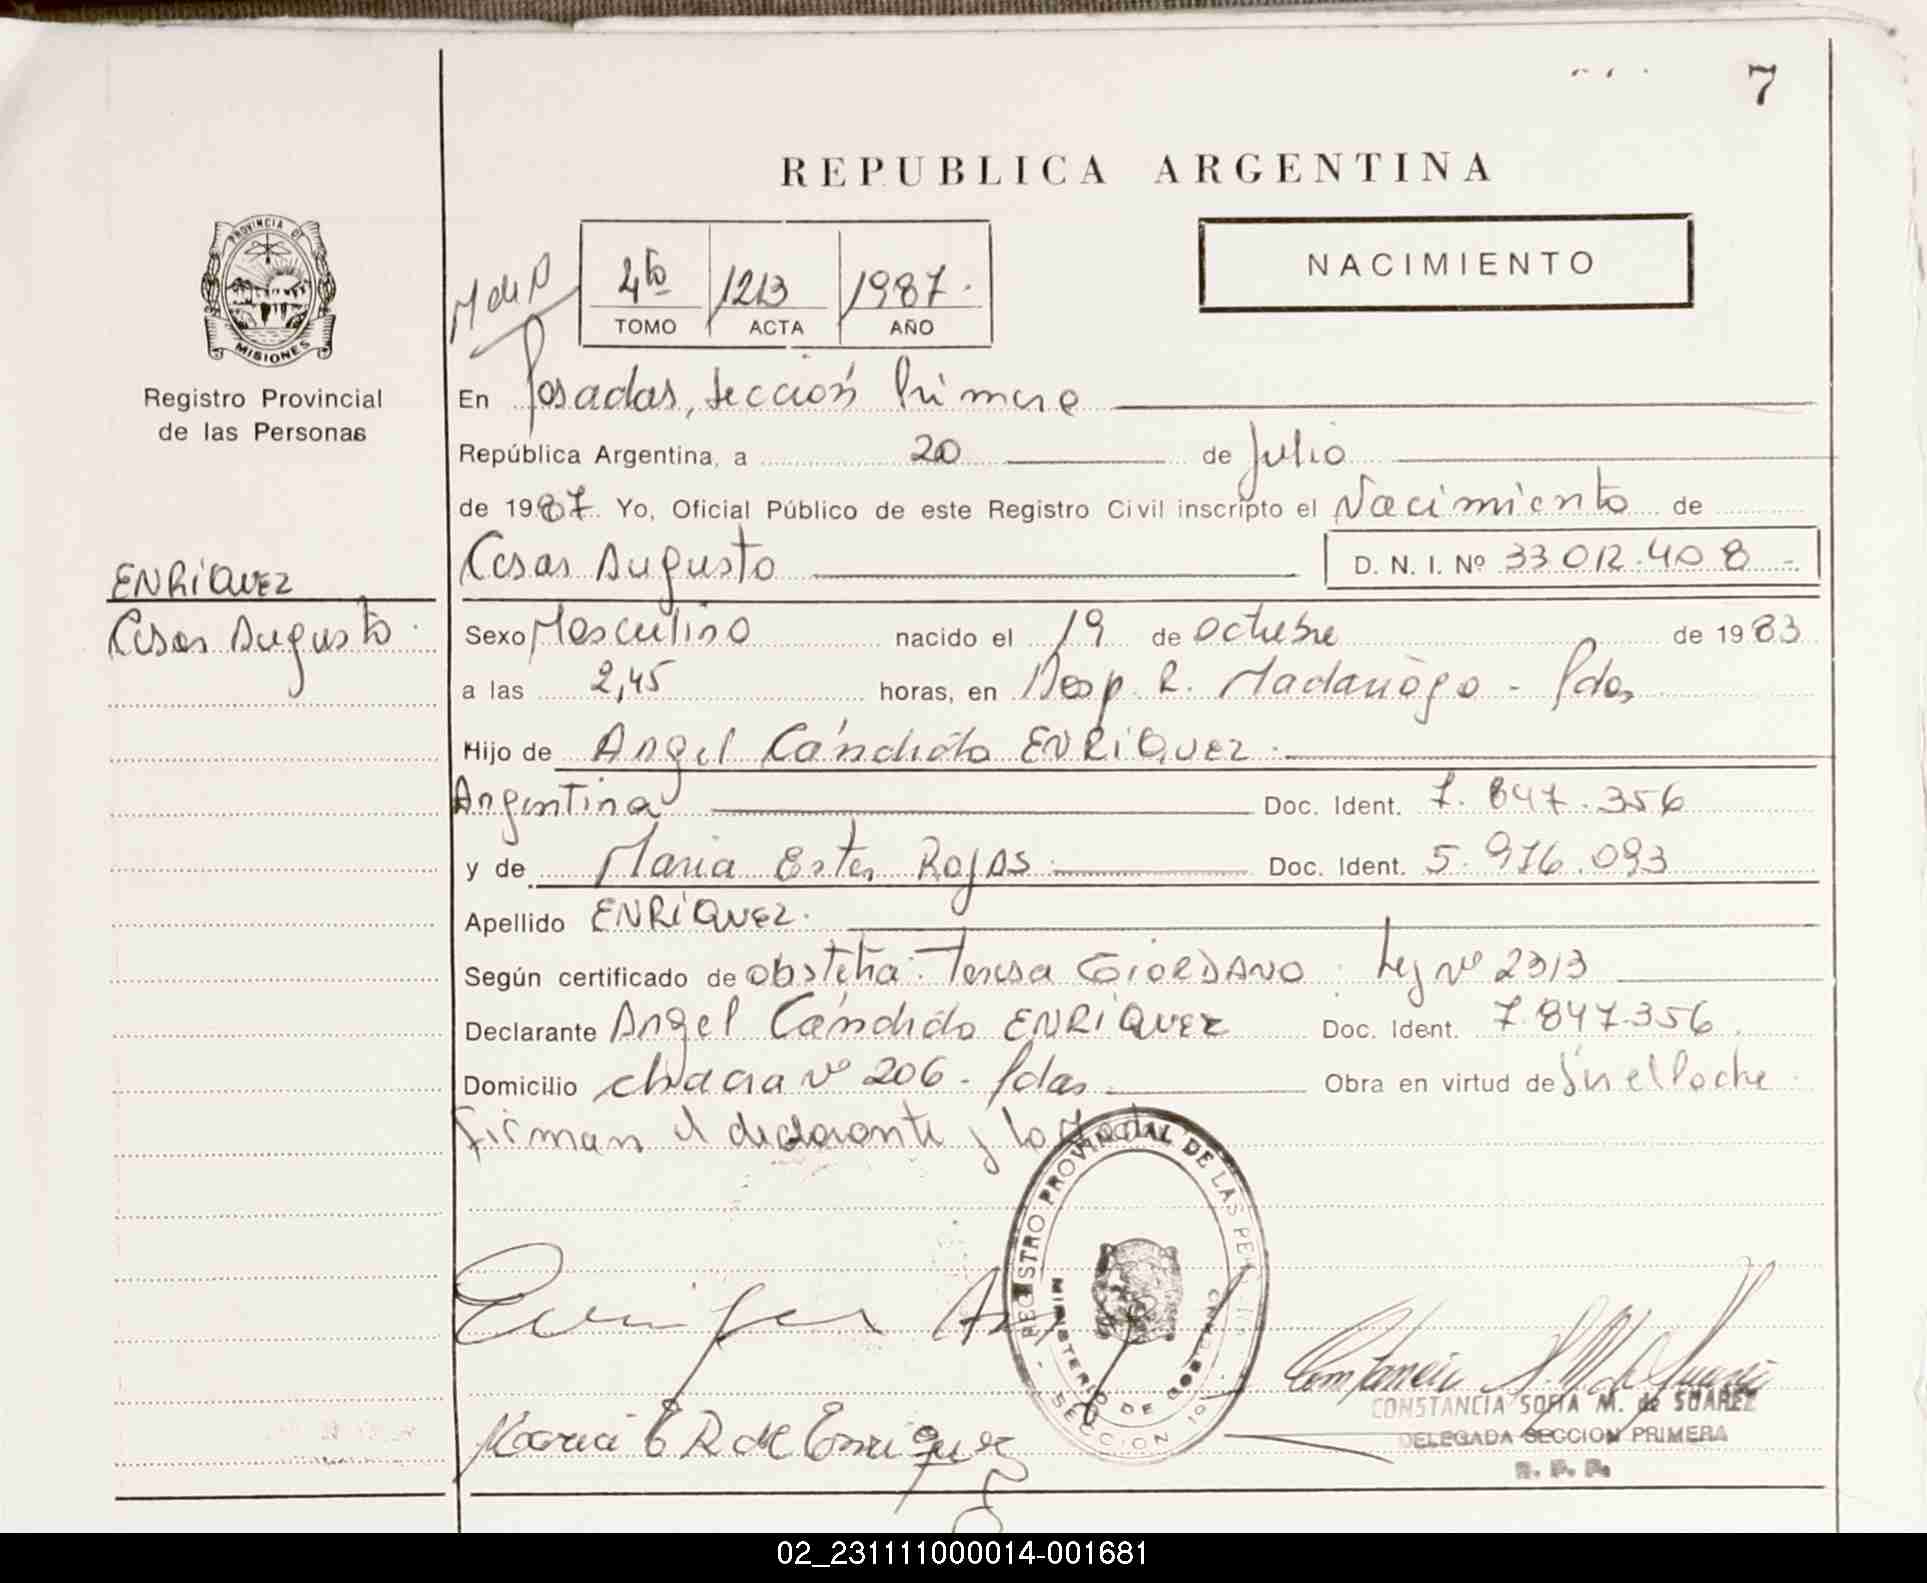 7
REPUBLICA ARGENTINA
NACIMIENTO
M de P
4to 1213 1987.
TOMO ACTA AÑO
PROVINCIA DE
MISIONES
Registro Provincial
de las Personas
En Posadas, Sección Primera
República Argentina, a 20 de Julio
de 1987. Yo, Oficial Público de este Registro Civil inscripto el Nacimiento de
Cesar Augusto D. N. I. Nº 33.012.408
ENRíQUEZ
Cesar Augusto.
Sexo Masculino nacido el 19 de octubre de 1983
a las 2,45 horas, en Hosp. R. Madariaga - Pdas
Hijo de Angel Cándido ENRíQUEZ.
Argentina Doc. Ident. 7.847.356
y de Maria Ester Rojas Doc. Ident. 5.976.093
Apellido ENRíQUEZ.
Según certificado de obstetra: Teresa GIORDANO. Ley Nº 2313
Declarante Angel Cándido ENRíQUEZ Doc. Ident. 7.847.356
Domicilio chacra Nº 206 - Pdas Obra en virtud de
Firman el declarante y la
REGISTRO PROVINCIAL DE LAS PER
MINISTERIO DE GOBIERNO
SECCION 1
Enriquez
Maria E R de Enriquez
Constancia S. M. de Suarez
CONSTANCIA SOFIA M. de SUAREZ
DELEGADA SECCION PRIMERA
R. P. P.
02_231111000014-001681